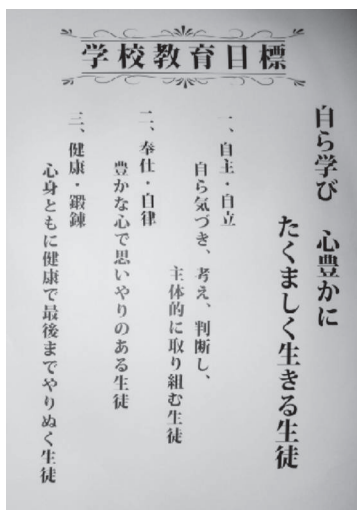 学校教育目標
自ら学び 心豊かに
たくましく生きる生徒
一、自主・自立
自ら気づき、考え、判断し、
主体的に取り組む生徒
二、奉仕・自律
豊かな心で思いやりのある生徒
三、健康・鍛錬
心身ともに健康で最後までやりぬく生徒